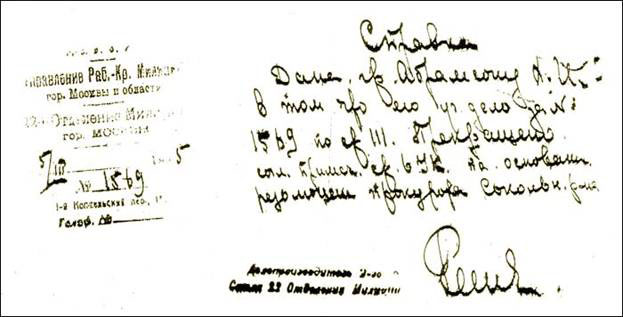 Управление Раб.-Кр. Милиции
гор. Москвы и области
Отделение Милиции
гор. МОСКВЫ
5/III 5
№ 1569
1-й Коптельский пер.,
Телеф. №
Справка
Дана гр. Абрамсону
в том что его уг. дело за №
1569 по ст 111. Прекращено
согл. примеч. ст 6 УК. на основании
резолюции прокурора Сокольн. р-на
Делопроизводитель
Стола 22 Отделения Милиции